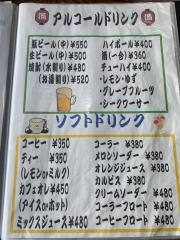 酒 アルコールドリンク 酒
瓶ビール(中)¥550
生ビール(中)¥500
焼酎(水割り)¥480
(お湯割り)¥520
ハイボール ¥400
酒(一合) ¥360
チューハイ ¥400
・レモン・ゆず
・グレープフルーツ
・シークワーサー
ソフトドリンク
コーヒー ¥350
ティー ¥350
(レモンorミルク)
カフェオレ ¥450
(アイスorホット)
ミックスジュース ¥480
コーラー ¥380
メロンソーダー ¥380
オレンジジュース ¥380
カルピス ¥380
クリームソーダー ¥480
コーラーフロート ¥480
コーヒーフロート ¥480